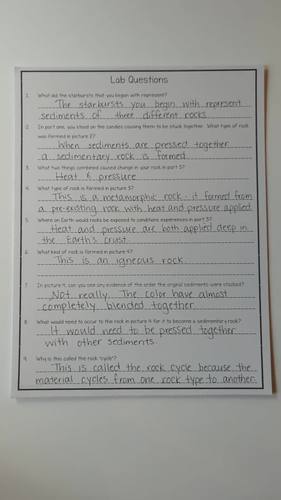 Lab Questions
1. What did the starbursts that you began with represent?
The starbursts you begin with represent
sediments of three different rocks.
2. In part one, you stood on the candies causing them to be stuck together. What type of rock
was formed in picture 2?
When sediments are pressed together
a sedimentary rock is formed.
3. What two things combined caused change in your rock in part 3?
Heat & pressure
4. What type of rock is formed in picture 3?
This is a metamorphic rock - it formed from
a pre-existing rock with heat and pressure applied.
5. Where on Earth would rocks be exposed to conditions experiences in part 3?
Heat and pressure are both applied deep in
the Earth's crust.
6. What kind of rock is formed in picture 4?
This is an igneous rock.
7. In picture 4, can you see any evidence of the order the original sediments were stacked?
Not really. The color have almost
completely blended together.
8. What would need to occur to the rock in picture 4 for it to become a sedimentary rock?
It would need to be pressed together
with other sediments.
9. Why is this called the rock "cycle"?
This is called the rock cycle because the
material cycles from one rock type to another.